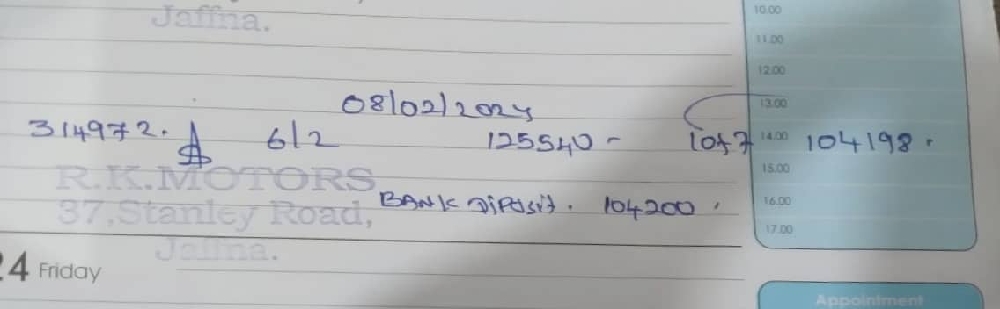 Jaffna.
10.00
11.00
12.00
08/02/2024 13.00
314972. 6/2 125540 - 1057 14.00 104198.
15.00
R.K.MOTORS
BANK Diposit. 104200. 16.00
37,Stanley Road,
17.00
Jaffna.
24 Friday
Appointment